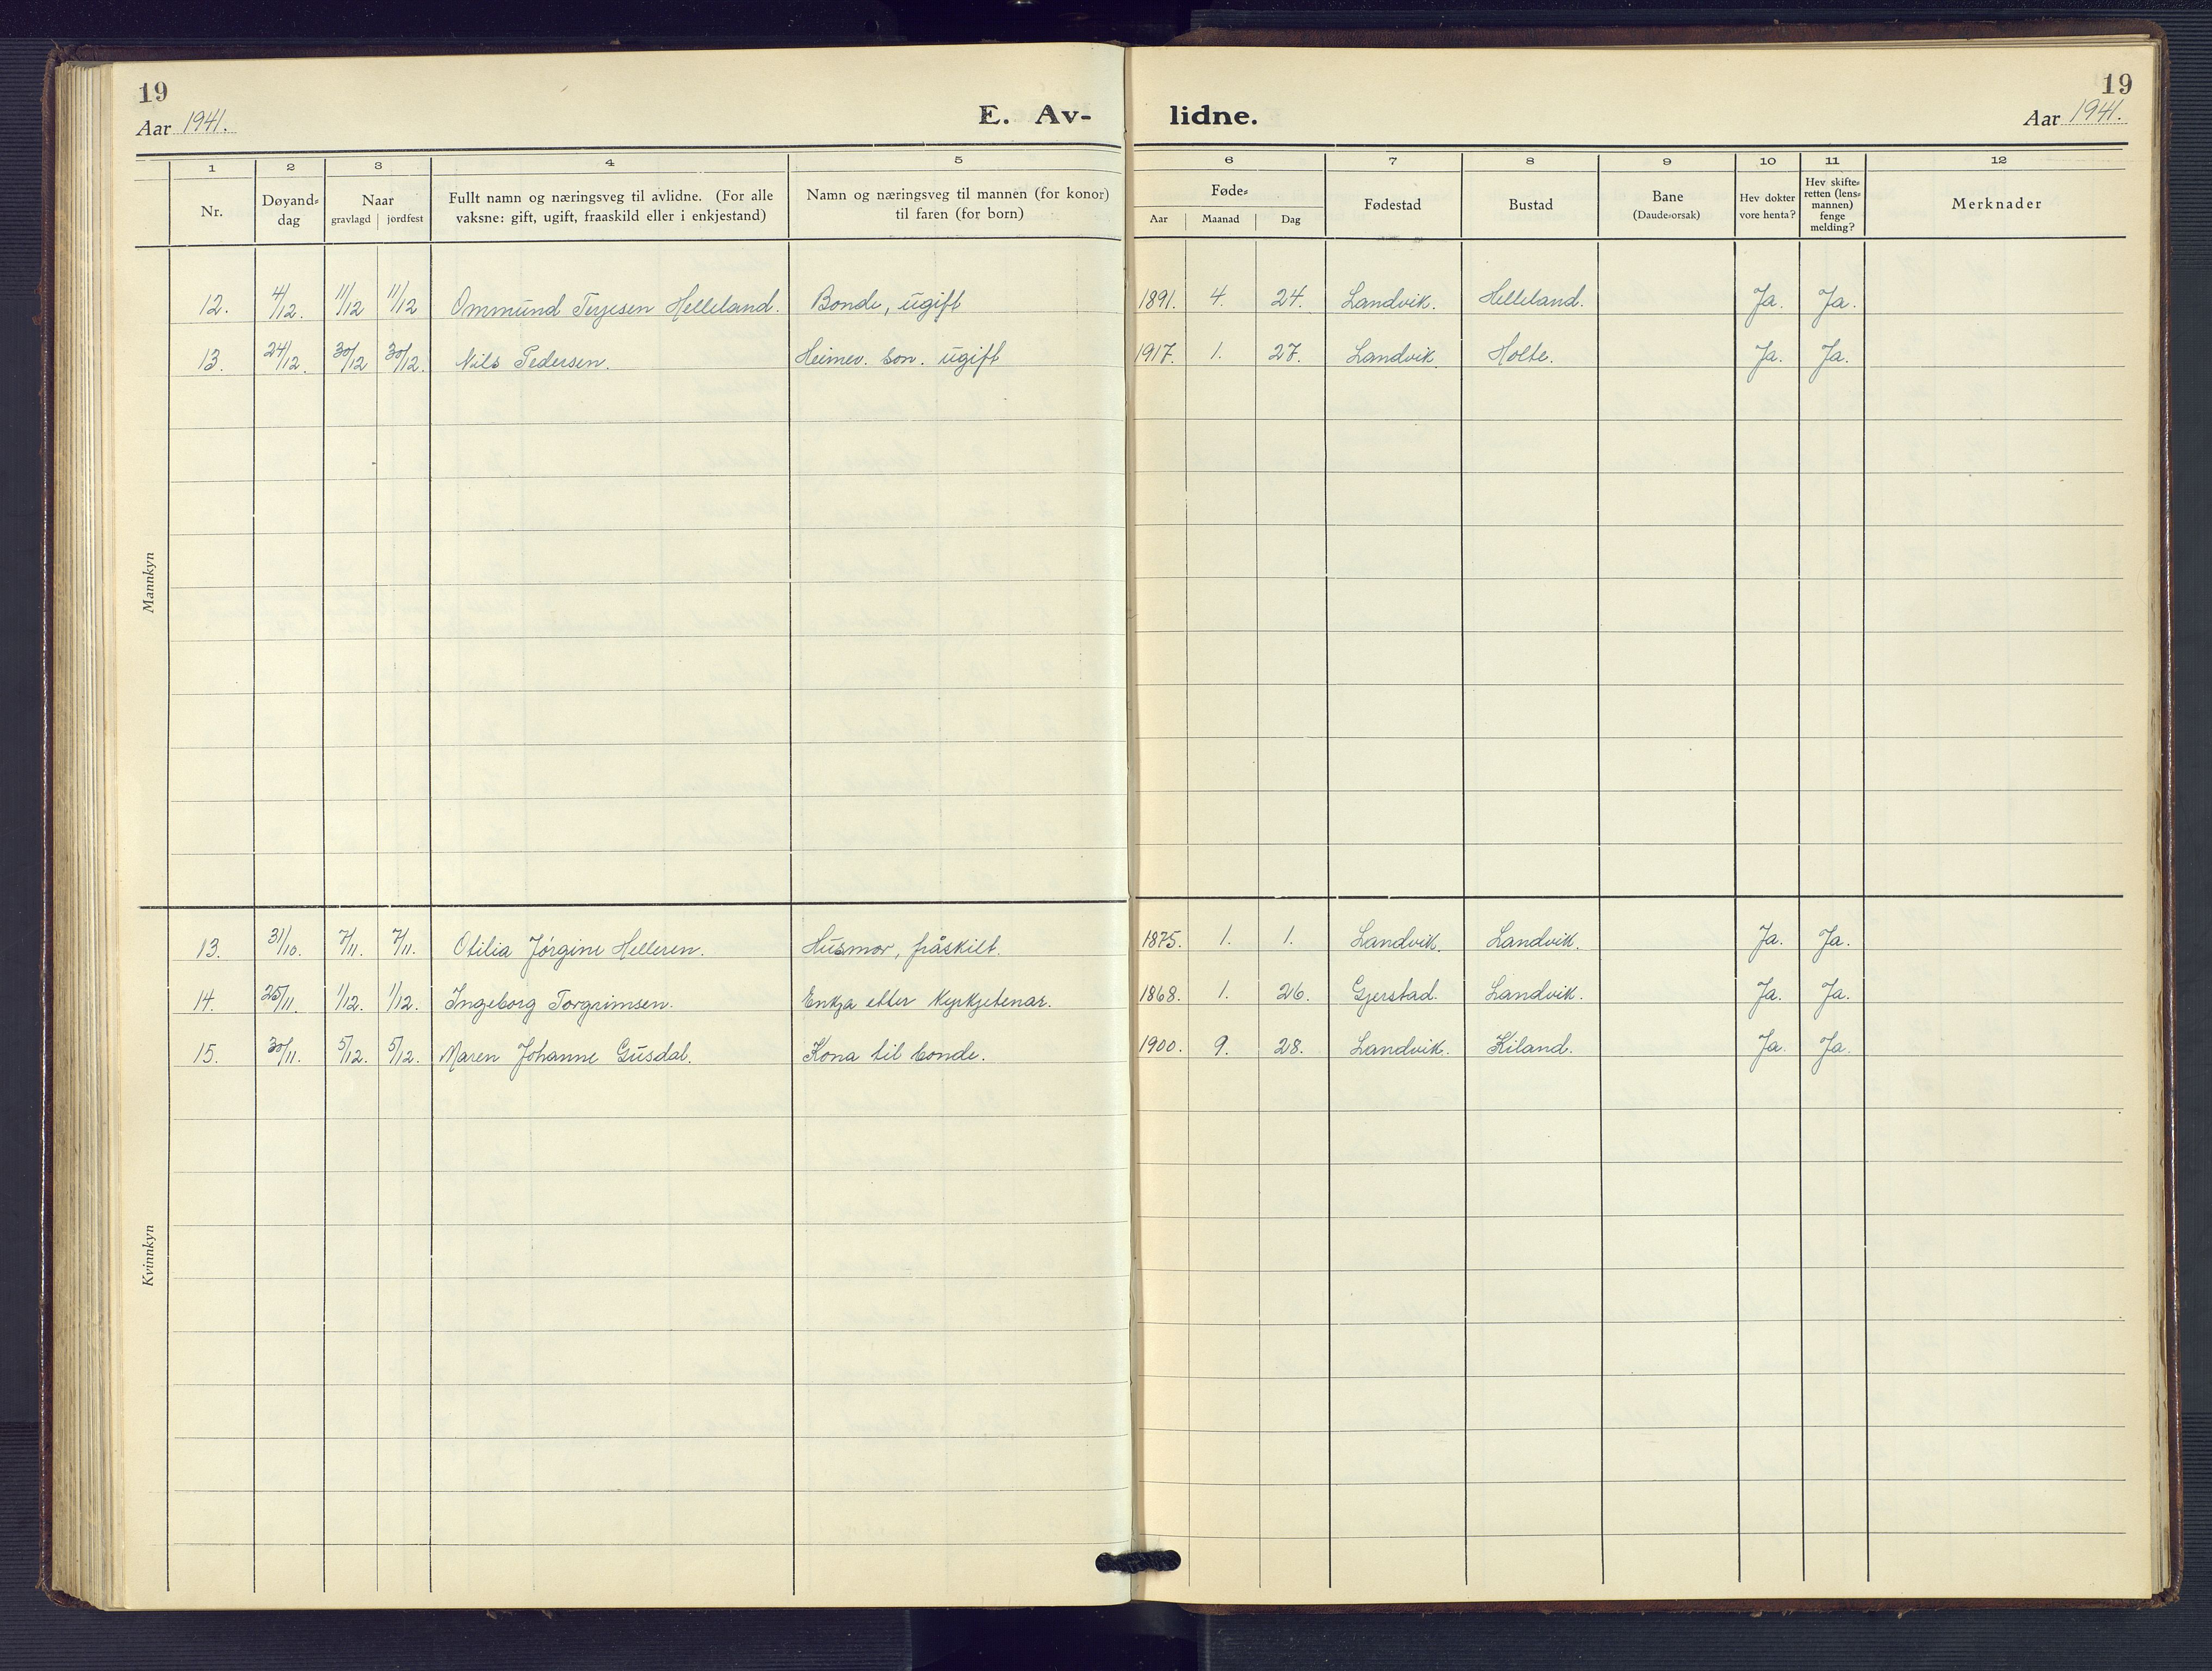 19
19
Aar 1941.
E. Av-
lidne.
Aar 1941.
1 2 3 4 5 6 7 8 9 10 11 12
Nr.
Døyand-
dag
Naar
gravlagd jordfest
Fullt namn og næringsveg til avlidne. (For alle
vaksne: gift, ugift, fraaskild eller i enkjestand)
Namn og næringsveg til mannen (for konor)
til faren (for born)
Føde-
Aar Maanad Dag
Fødestad
Bustad
Bane
(Daude-orsak)
Hev dokter
vore henta?
Hev skifte-
retten (lens-
mannen)
fenge
melding?
Merknader
Mannkyn
12. 4/12. 11/12 11/12 Ommund Terjesen Helleland. Bonde, ugift 1891. 4. 24. Landvik. Helleland. Ja. Ja.
13. 24/12. 30/12 30/12. Nils Pedersen. Heimev. son. ugift 1917. 1. 27. Landvik. Holte. Ja. Ja.
Kvinnkyn
13. 31/10. 7/11. 7/11. Otilia Jørgine Helleren. Husmor, fråskilt. 1875. 1. 1. Landvik. Landvik. Ja. Ja.
14. 25/11. 1/12. 1/12. Ingeborg Torgrimsen. Enkja etter kyrkjetenar. 1868. 1. 26. Gjerstad. Landvik. Ja. Ja.
15. 30/11. 5/12. 5/12. Maren Johanne Gusdal. Kona til bonde. 1900. 9. 28. Landvik. Kiland. Ja. Ja.